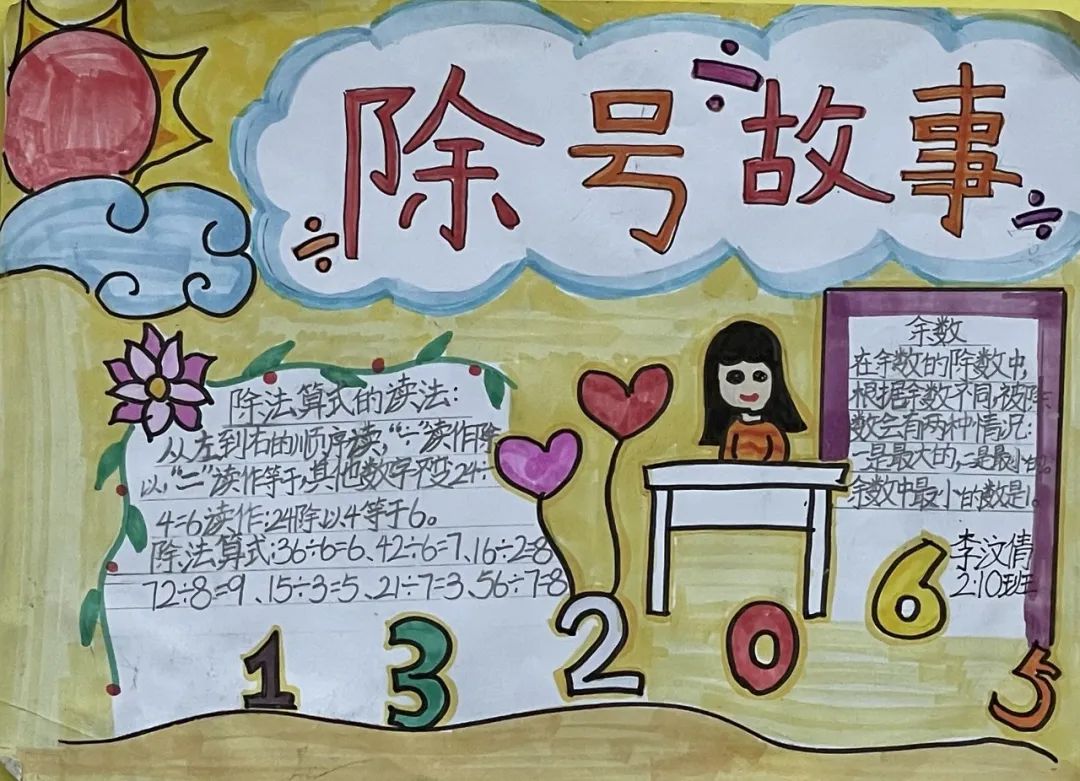 除号故事
÷
÷
÷
除法算式的读法:
从左到右的顺序读,“÷”读作除
以,“=”读作等于,其他数字不变24÷
4=6读作:24除以4等于6。
除法算式:36÷6=6、42÷6=7、16÷2=8
72÷8=9、15÷3=5、21÷7=3、56÷7=8
余数
在余数的除数中,
根据余数不同,被除
数会有两种情况:
一是最大的,二是最小的。
余数中最小的数是1。
李汶倩
2.10班
1
3
2
0
6
5